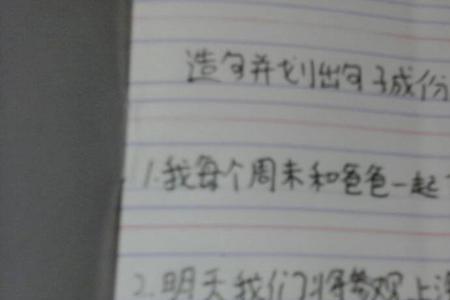 造句并划出句子成份
1.我每个周末和爸爸一起
2.明天我们将参观上